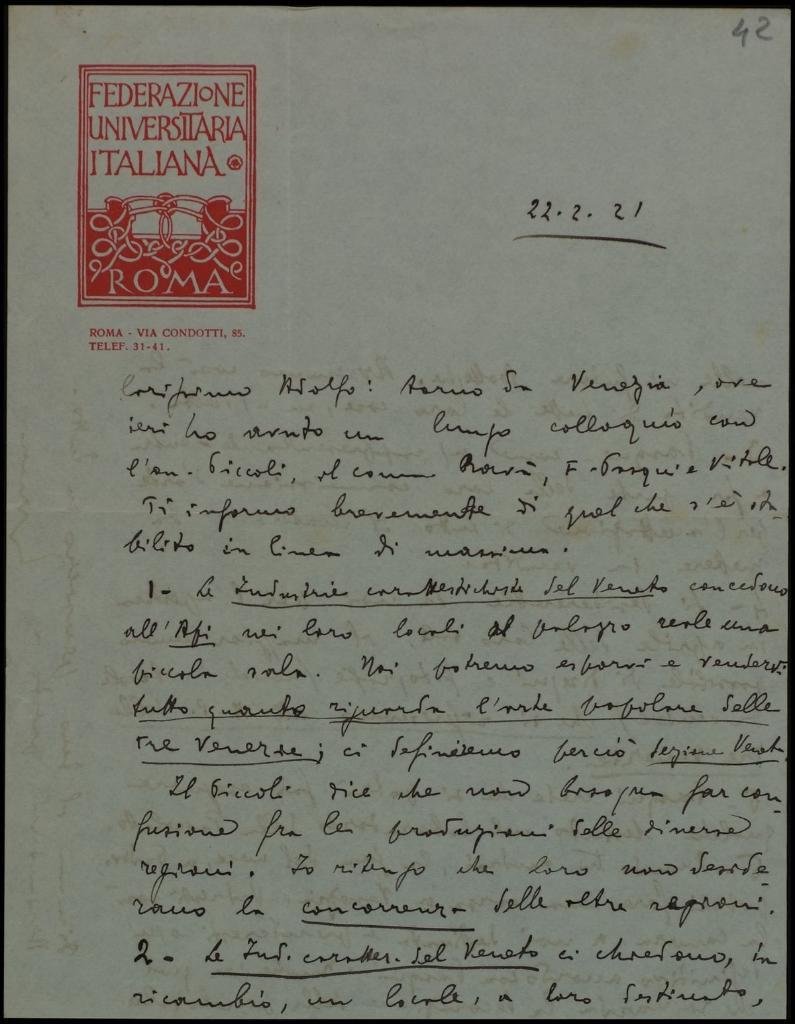 42
FEDERAZIONE
UNIVERSITARIA
ITALIANA
ROMA
ROMA - VIA CONDOTTI, 85.
TELEF. 31-41.
22.2.21
Carissimo Adolfo: torno da Venezia, ove
ieri ho avuto un lungo colloquio con
l'on. Piccoli, il comm Ravà, F. Pasqui e Vitelle.
Ti informo brevemente di quel che s'è sta-
bilito in linea di massima.
1- Le Industrie caratteristiche del Veneto concedono
all'Api nei loro locali al palazzo reale una
piccola sala. Noi potremo esporvi e vendervi
tutto quanto riguarda l'arte popolare delle
tre Venezie; ci definiremo perciò sezione Veneta.
Il Piccoli dice che non bisogna far con-
fusione fra le produzioni delle diverse
regioni. Io ritengo che loro non deside-
rano la concorrenza delle altre regioni.
2- Le Ind. caratter. del Veneto ci chiedono, in
ricambio, un locale, a loro destinato,